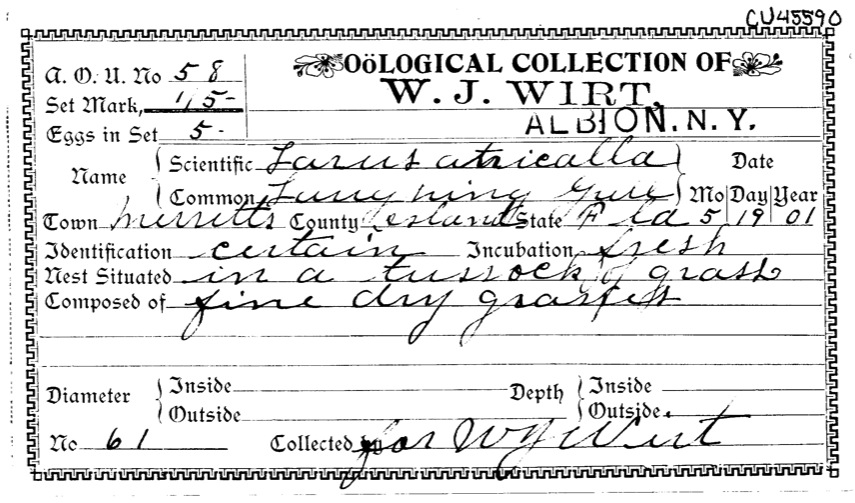 CU45590
A. O. U. No 58
OöLOGICAL COLLECTION OF
Set Mark, 1/5-
W. J. WIRT,
Eggs in Set 5-
ALBION. N. Y.
Name Scientific Larus atricalla Date
Common Laughing Gull Mo Day Year
Town Merretts County Island State Fla 5 19 01
Identification certain Incubation fresh
Nest Situated in a tussock of grass
Composed of fine dry grasses
Diameter Inside Depth Inside
Outside Outside
No 61 Collected for W J Wirt